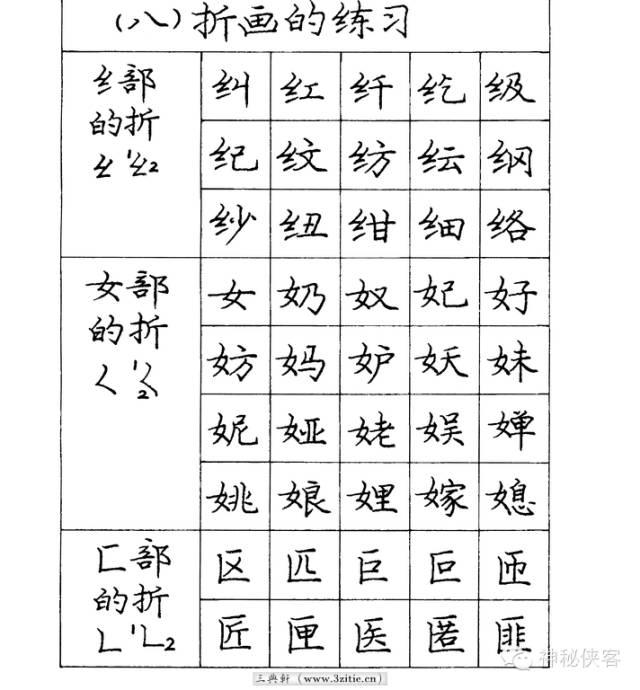 (八)折画的练习
纟部
的折
纠 红 纤 纥 级
纪 纹 纺 纭 纲
纱 纽 绀 细 络
女部
的折
女 奶 奴 妃 好
妨 妈 妒 妖 妹
妮 娅 姥 娱 婵
姚 娘 娌 嫁 媳
匚部
的折
区 匹 巨 叵 匝
匠 匣 医 匿 匪
三典轩 (www.3zitie.cn)
神秘侠客